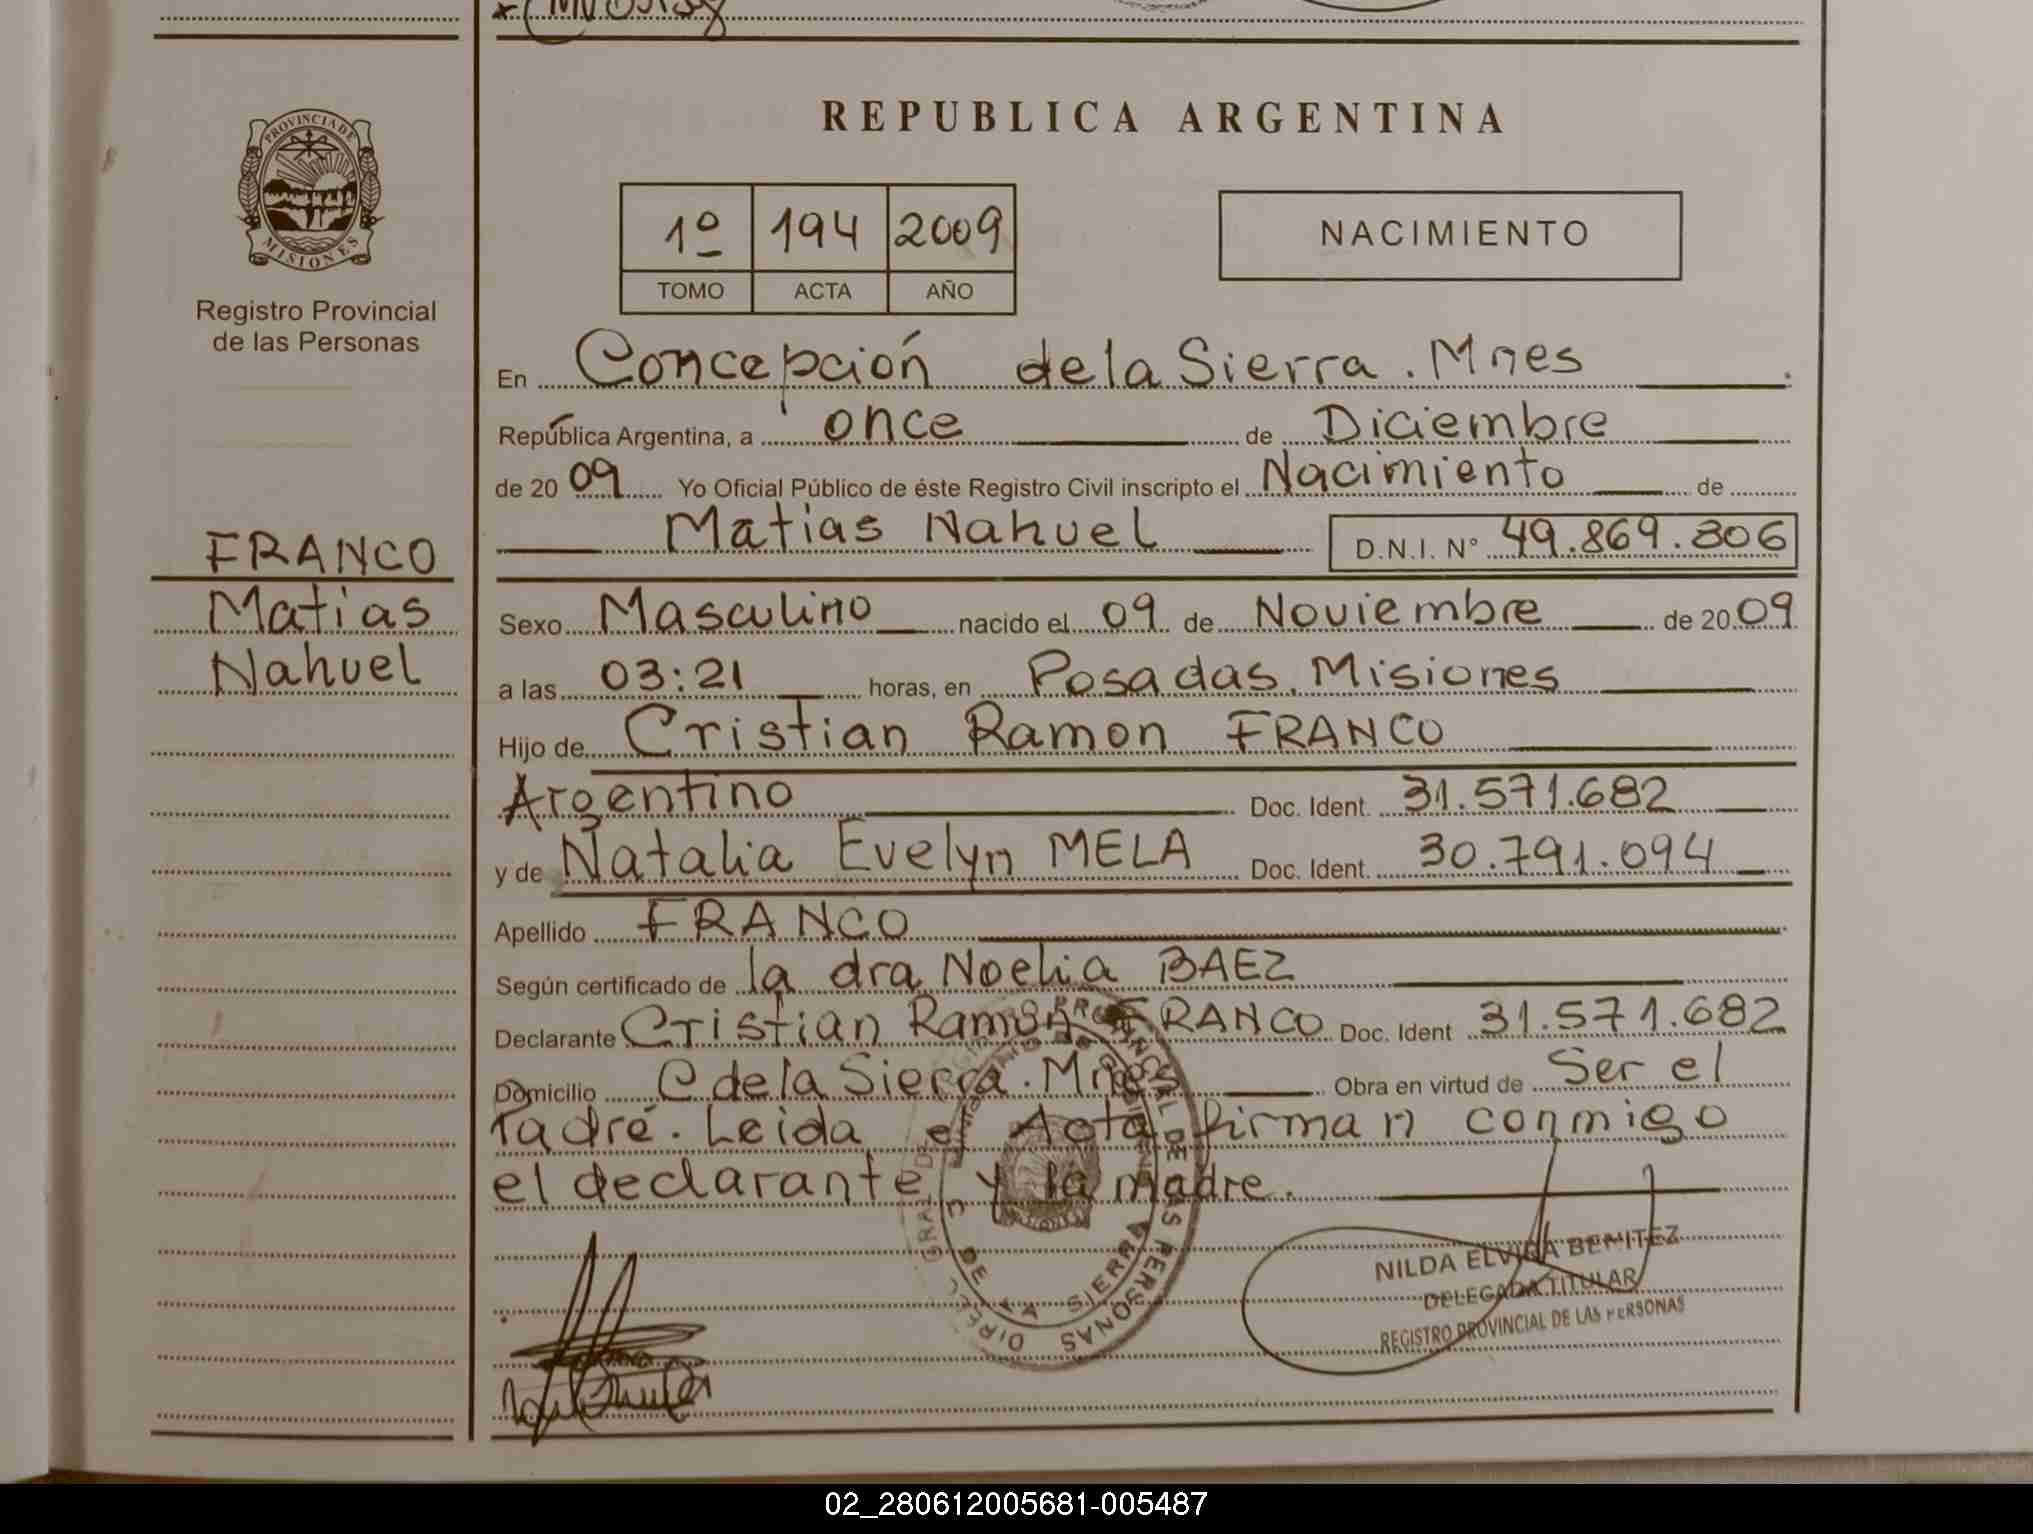 REPUBLICA ARGENTINA
PROVINCIA DE
MISIONES
Registro Provincial
de las Personas
1º 194 2009
TOMO ACTA AÑO
NACIMIENTO
En Concepción de la Sierra. Mnes
República Argentina, a once de Diciembre
de 2009 Yo Oficial Público de éste Registro Civil inscripto el Nacimiento de
Matias Nahuel D.N.I. N° 49.869.806
FRANCO
Matias
Nahuel
Sexo Masculino nacido el 09 de Noviembre de 2009
a las 03:21 horas, en Posadas. Misiones
Hijo de Cristian Ramon FRANCO
Argentino Doc. Ident. 31.571.682
y de Natalia Evelyn MELA Doc. Ident. 30.791.094
Apellido FRANCO
Según certificado de la dra Noelia BAEZ
Declarante Cristian Ramon FRANCO Doc. Ident 31.571.682
Domicilio C de la Sierra. Mnes Obra en virtud de Ser el
Padre. Leida el Acta firman conmigo
el declarante y la madre.
NILDA ELVIRA BENITEZ
DELEGADA TITULAR
REGISTRO PROVINCIAL DE LAS PERSONAS
02_280612005681-005487